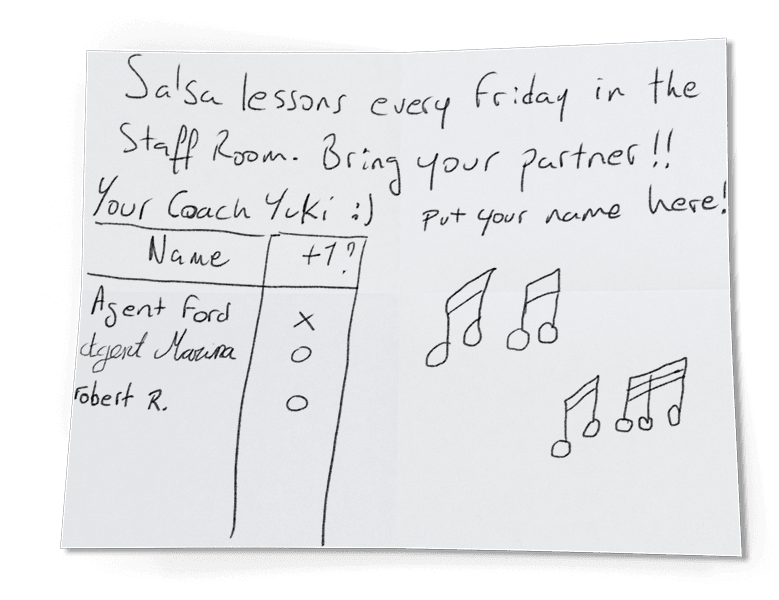 Salsa lessons every Friday in the
Staff Room. Bring your partner!!
Your Coach Yuki :)
Put your name here!
Name +1?
Agent Ford X
Agent Marina O
Robert R. O